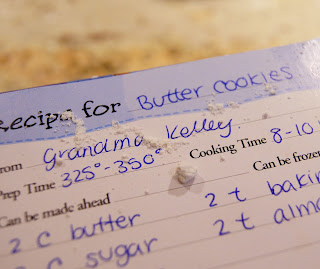 Recipe for Butter Cookies
From Grandma Kelley
Prep Time 325°-350° Cooking Time 8-10
Can be made ahead Can be frozen
2 c butter 2 t
c sugar 2 t